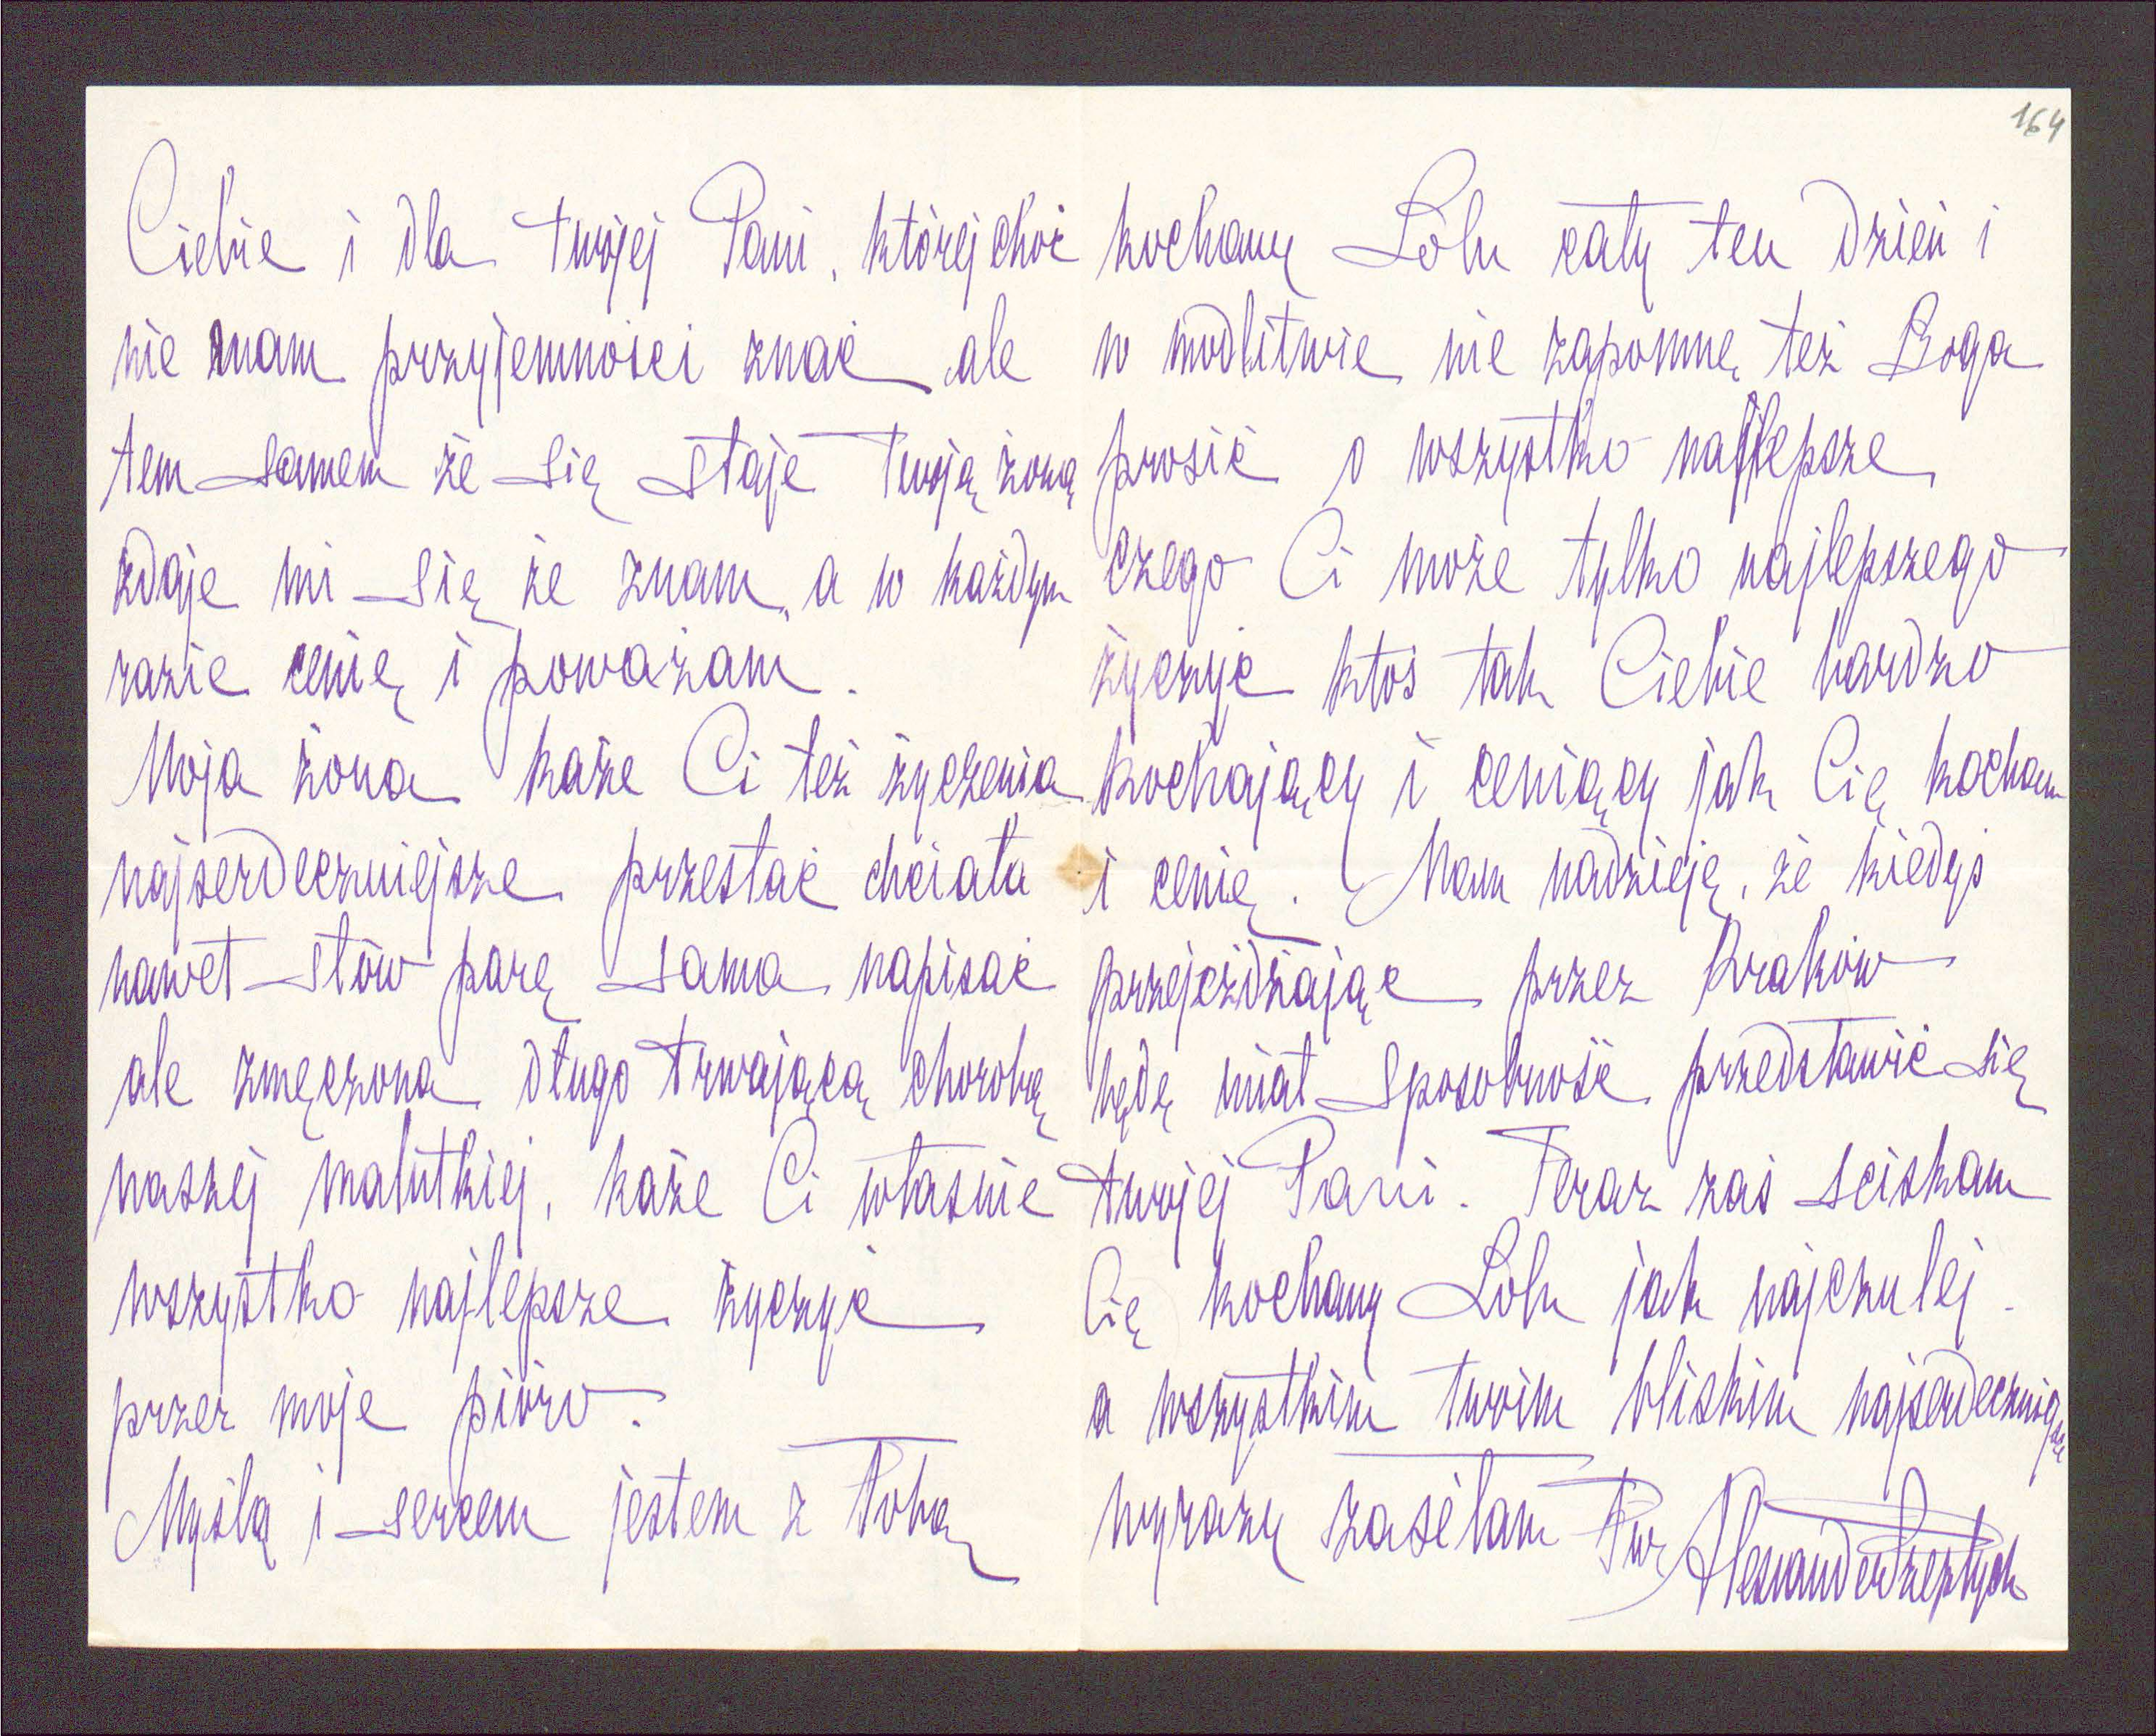 164
Ciebie i dla twojej Pani, której choć
nie mam przyjemności znać ale
tem samem że się staje Twoją żoną
zdaje mi się że znam, a w każdym
razie cenię i poważam.
Moja żona każe Ci też życzenia
najserdeczniejsze przesłać chciała
nawet słów parę sama napisać
ale zmęczona długo trwającą chorobą
naszej malutkiej, każe Ci właśnie
wszystko najlepsze życzyć
przez moje pióro.
Myślą i sercem jestem z Tobą
kochany Lolu cały ten dzień i
w modlitwie nie zapomnę też Boga
prosić o wszystko najlepsze
czego Ci może tylko najlepszego
życzyć ktoś tak Ciebie bardzo
kochający i ceniący jak Cię kocham
i cenię. Mam nadzieję, że kiedyś
przejeżdżając przez Kraków
będę miał sposobność przedstawić się
twojej Pani. Teraz zaś sciskam
Cię kochany Lolu jak najczulej.
a wszystkim twoim bliskim najserdeczniejsze
wyrazy zasełam Twój